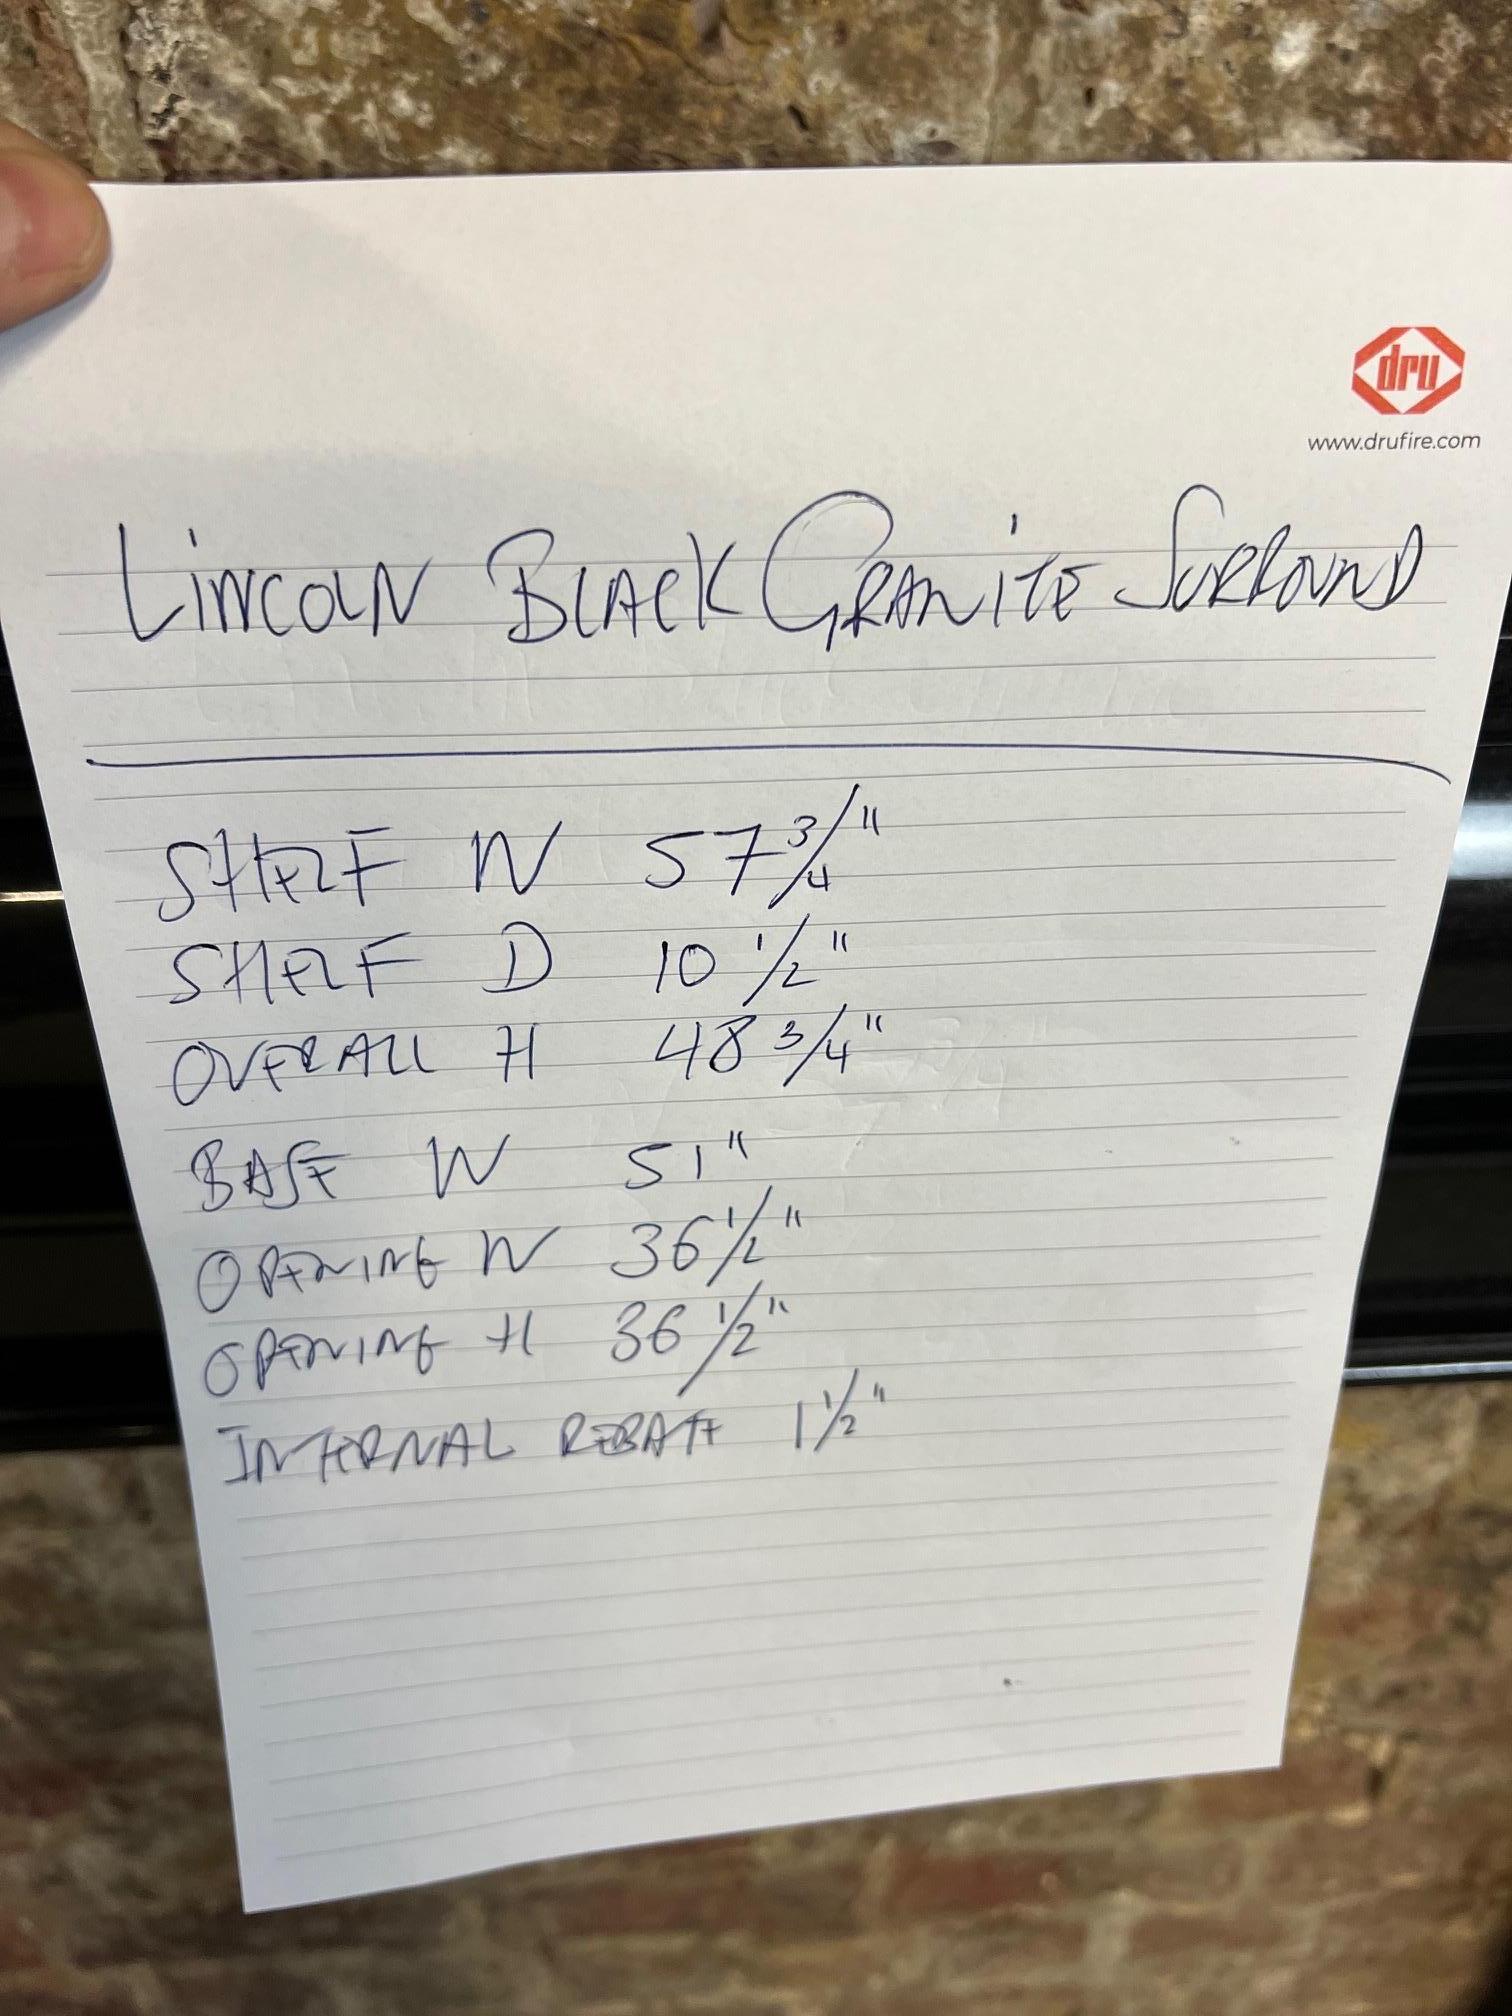 dru
www.drufire.com
LINCOLN BLACK GRANITE SURROUND
SHELF W 57 3/4"
SHELF D 10 1/2"
OVERALL H 48 3/4"
BASE W 51"
OPENING W 36 1/2"
OPENING H 36 1/2"
INTERNAL REBATE 1 1/2"